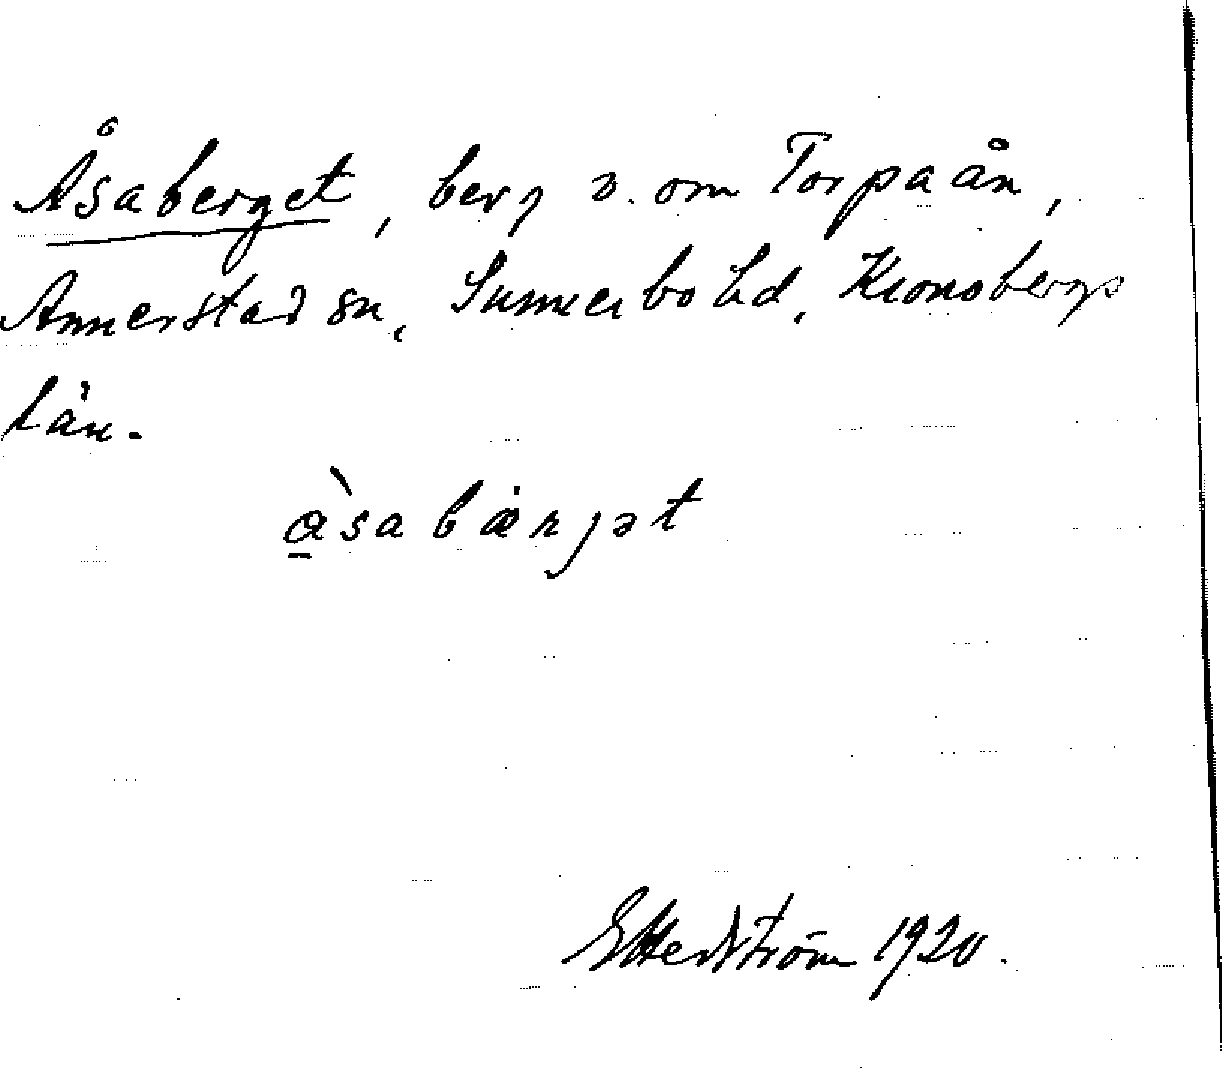 Åsaberget, berg v. om Torpaån,
Annerstad sn, Sunnerbo hd, Kronobergs
län.
å̀sabærjət
1920.